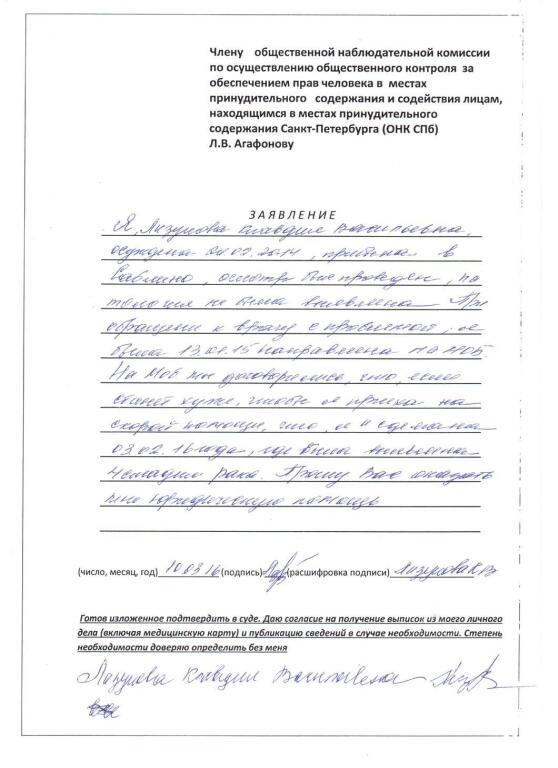 Члену общественной наблюдательной комиссии
по осуществлению общественного контроля за
обеспечением прав человека в местах
принудительного содержания и содействия лицам,
находящимся в местах принудительного
содержания Санкт-Петербурга (ОНК СПб)
Л.В. Агафонову
ЗАЯВЛЕНИЕ
Я, Лазурова Клавдия Васильевна,
осуждена 02.2014, прибыла в
Саблино, осмотр был проведен, па
тология не была выявлена При
обращени к врачу с проблемой, я
была 13.07.15 направлена на МОБ
На моб мы договорились, что, если
станет хуже, чтобы я приеха на
скорой помощи, что, я и сделала
03.02.16 года, где была выявлена
4 стадия рака. Прошу Вас оказать
мне юридическую помощь
(число, месяц, год) 10.03.16 (подпись) (расшифровка подписи) Лазурова К.В
Готов изложенное подтвердить в суде. Даю согласие на получение выписок из моего личного
дела (включая медицинскую карту) и публикацию сведений в случае необходимости. Степень
необходимости доверяю определить без меня
Лазурова Клавдия Васильевна